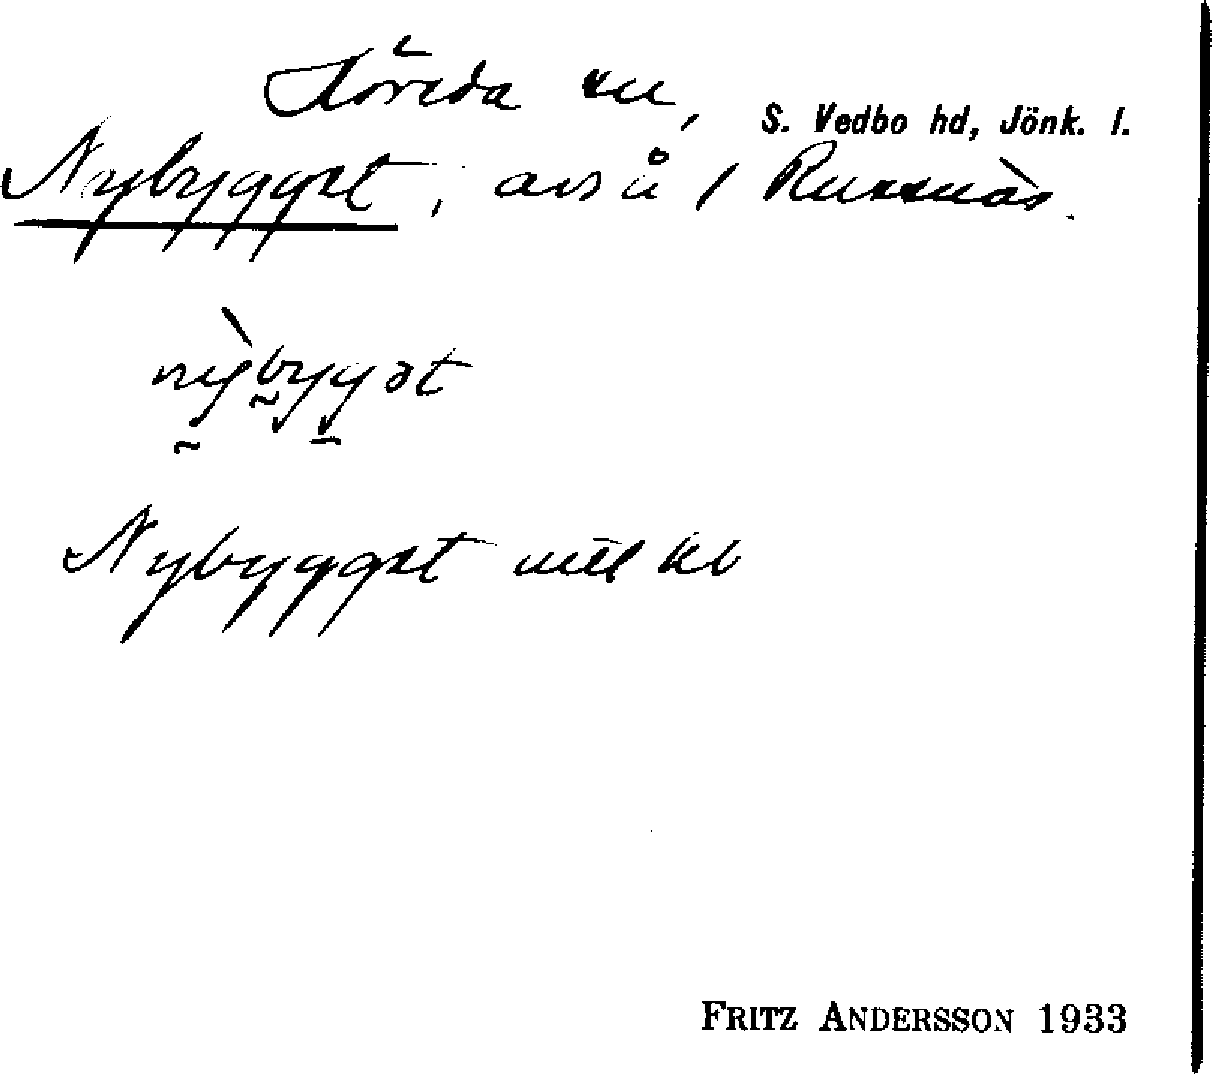 Höreda sn,
S. Vedbo hd, Jönk. l.
Nybygget, avs å / Russnäs.
nỳbygət
Nybygget mtl kb
FRITZ ANDERSSON 1933